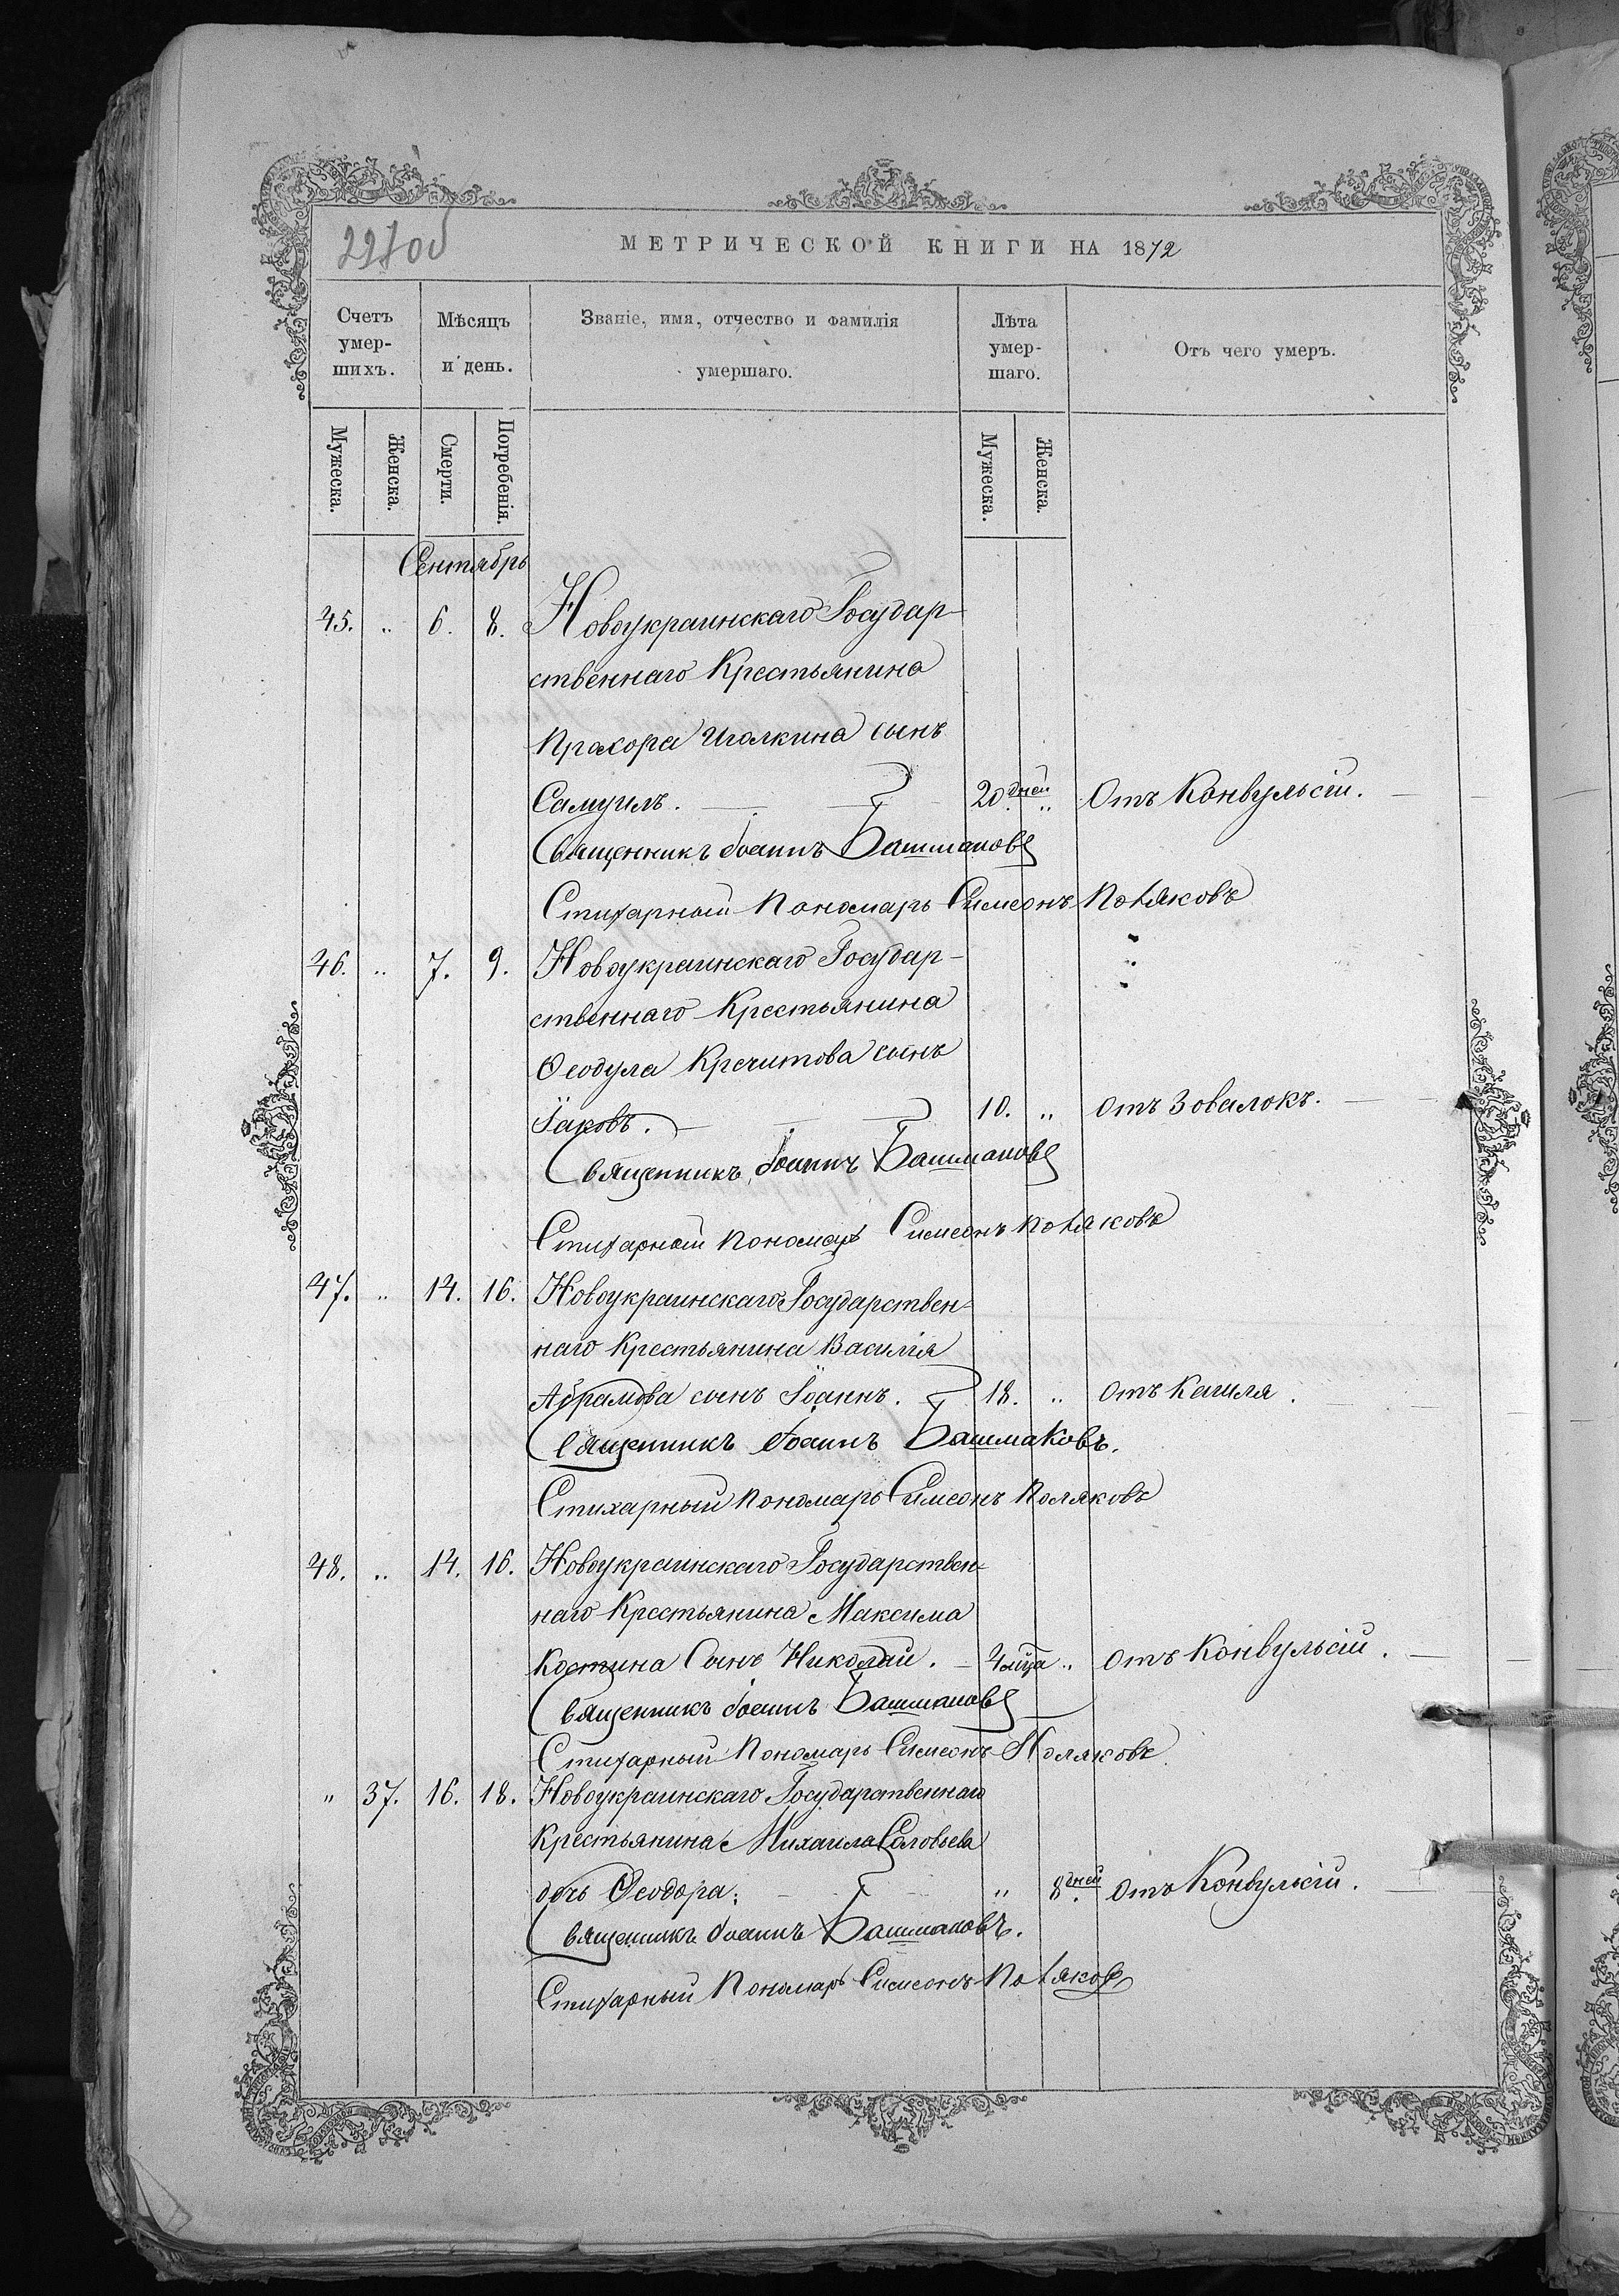 229 об
МЕТРИЧЕСКОЙ КНИГИ НА 1872
Счетъ умер-шихъ.
Мѣсяцъ и день.
Званіе, имя, отчество и фамилія умершаго.
Лѣта умер-шаго.
Отъ чего умеръ.
Мужеска.
Женска.
Смерти.
Погребенія.
Мужеска.
Женска.
Сентябрь
45. „ 6. 8. Новоукраинскаго Государ-
ственнаго Крестьянина
Прохора Иголкина сынъ
Самуилъ. 20 дней „ Отъ Конвульсіи.
Священникъ Іоаннъ Башмаковъ
Стихарный Пономарь Симеонъ Поляковъ
46. „ 7. 9. Новоукраинскаго Государ-
ственнаго Крестьянина
Ѳеодула Кречитова сынъ
Іаковъ. 10. „ Отъ Зовалокъ.
Священникъ Іоаннъ Башмаковъ
Стихарный Пономарь Симеонъ Поляковъ
47. „ 14. 16. Новоукраинскаго Государствен-
наго Крестьянина Василія
Абрамова сынъ Іоаннъ. 18. „ Отъ Кашля.
Священникъ Іоаннъ Башмаковъ.
Стихарный Пономарь Симеонъ Поляковъ
48. „ 14. 16. Новоукраинскаго Государствен-
наго Крестьянина Максима
Костина Сынъ Николай. 4 мѣца „ Отъ Конвульсіи.
Священникъ Іоаннъ Башмаковъ
Стихарный Пономарь Симеонъ Поляковъ
„ 37. 16. 18. Новоукраинскаго Государственнаго
Крестьянина Михаила Соловьева
дочь Ѳеодора. „ 8 дней Отъ Конвульсіи.
Священникъ Іоаннъ Башмаковъ.
Стихарный Пономарь Симеонъ Поляковъ